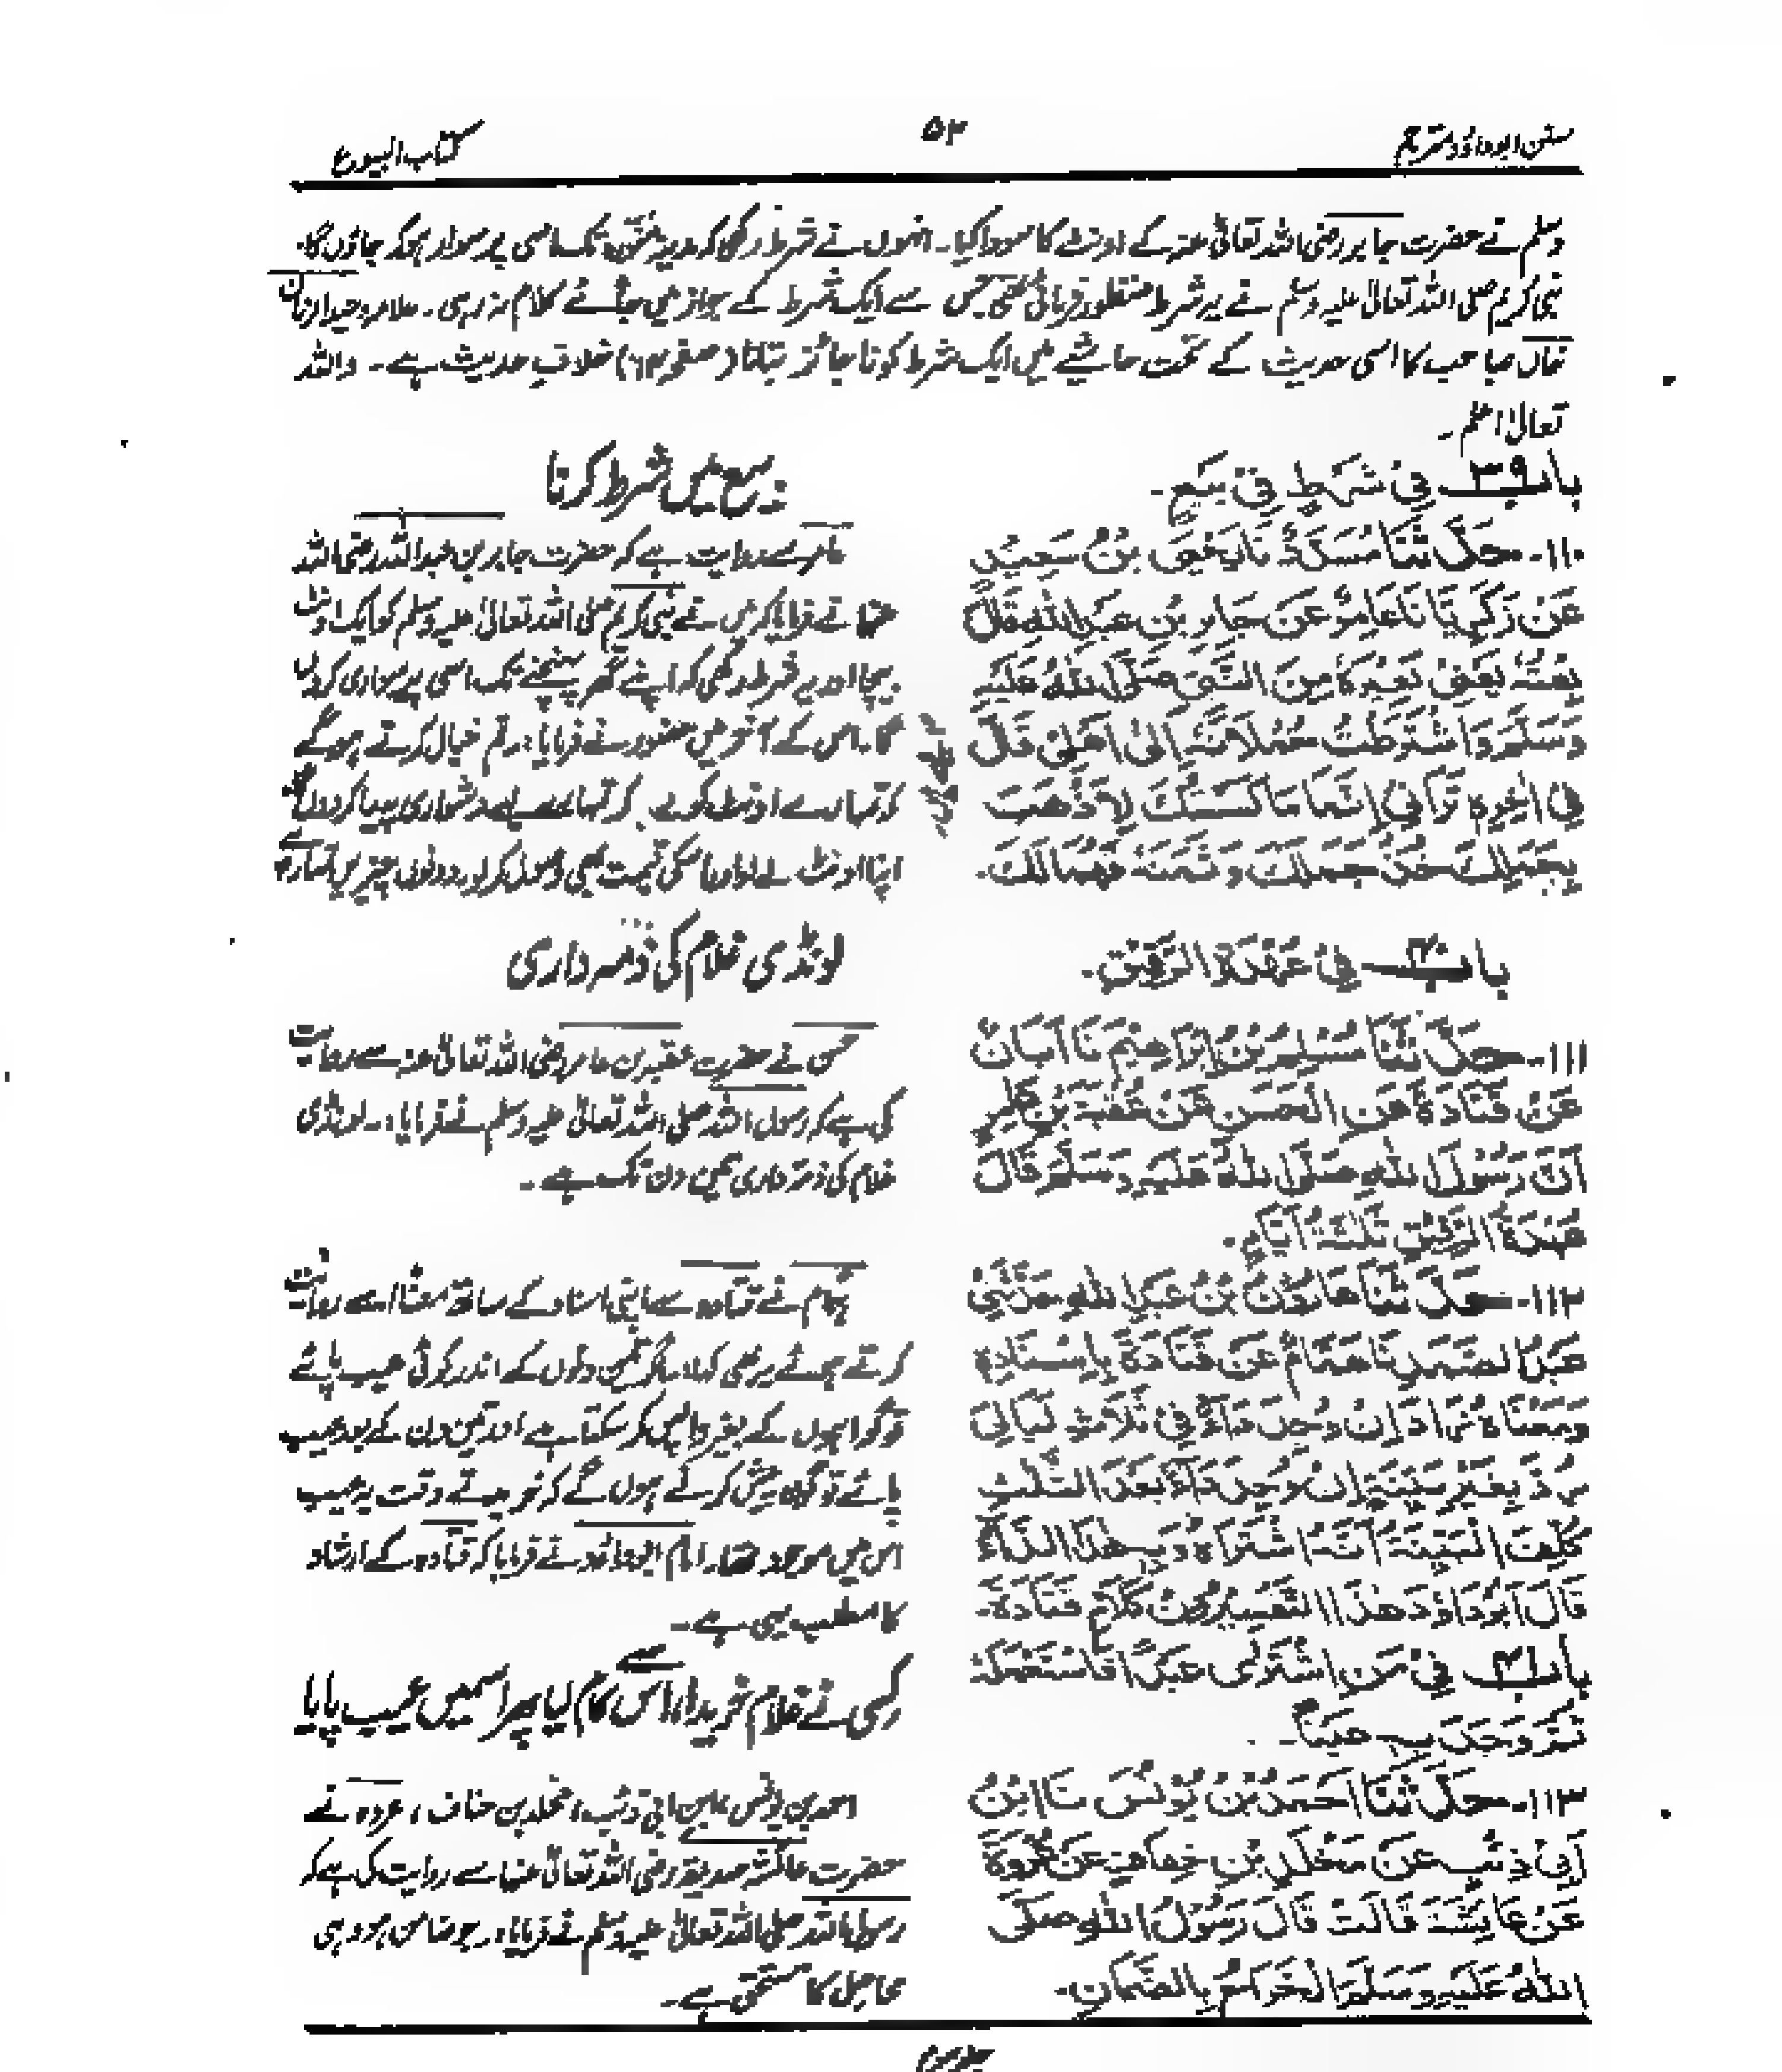 سنن ابوداؤد مترجم
۵۳
کتاب البیوع
وسلم نے حضرت جابر رضی اللہ تعالیٰ عنہ کے اونٹ کا سودا کیا۔ انہوں نے شرط رکھی کہ مدینہ منورہ تک اسی پر سوار ہو کر جاؤں گا۔
نبی کریم صلی اللہ تعالیٰ علیہ وسلم نے یہ شرط منظور فرمائی تھی جس سے ایک شرط کے جواز میں جائے کلام نہ رہی۔ علامہ وحید الزمان
خاں صاحب کا اسی حدیث کے تحت حاشیے میں ایک شرط کو ناجائز بتانا (صفحہ ۶۳) خلافِ حدیث ہے۔ واللہ
تعالیٰ اعلم۔
باب ۳۹ فِی شَرْطٍ فِی بَیْعٍ۔
۱۱۰۔ حَدَّثَنَا مُسَدَّدٌ نَا یَحْیَی بْنُ سَعِیْدٍ
عَنْ زَکَرِیَّا نَا عَامِرٌ عَنْ جَابِرِ بْنِ عَبْدِ اللهِ قَالَ
بِعْتُهُ یَعْنِیْ بَعِیْرَهُ مِنَ النَّبِیِّ صَلَّی اللهُ عَلَیْهِ
وَسَلَّمَ وَاشْتَرَطْتُ حُمْلَانَهُ إِلٰی أَهْلِیْ قَالَ
فِی اٰخِرِهِ تَرَانِی إِنَّمَا مَاکَسْتُكَ لِأَذْهَبَ
بِجَمَلِكَ خُذْ جَمَلَكَ وَثَمَنَهُ فَهُمَا لَكَ۔
بیع میں شرط کرنا
عامر سے روایت ہے کہ حضرت جابر بن عبداللہ رضی اللہ
عنہما نے فرمایا کہ میں نے نبی کریم صلی اللہ تعالیٰ علیہ وسلم کو ایک اونٹ
بیچا اور یہ شرط رکھی کہ اپنے گھر پہنچنے تک اسی پر سواری کروں
گا۔ اس کے آخر میں حضور نے فرمایا: تم خیال کرتے ہو گے
کہ تمہارے اونٹ کو لے کر تمہارے لیے دشواری پیدا کر دوں گا
اپنا اونٹ لے لو اور اس کی قیمت بھی وصول کر لو۔ دونوں چیزیں تمہاری
باب ۴۰ فِی عُهْدَةِ الرَّقِیْقِ۔
۱۱۱۔ حَدَّثَنَا مُسْلِمُ بْنُ إِبْرَاهِیْمَ نَا أَبَانُ
عَنْ قَتَادَةَ عَنِ الْحَسَنِ عَنْ عُقْبَةَ بْنِ عَامِرٍ
أَنَّ رَسُوْلَ اللهِ صَلَّی اللهُ عَلَیْهِ وَسَلَّمَ قَالَ
عُهْدَةُ الرَّقِیْقِ ثَلٰثَةُ أَیَّامٍ۔
لونڈی غلام کی ذمہ داری
حسن نے حضرت عقبہ بن عامر رضی اللہ تعالیٰ عنہ سے روایت
کی ہے کہ رسول اللہ صلی اللہ تعالیٰ علیہ وسلم نے فرمایا:۔ لونڈی
غلام کی ذمہ داری تین دن تک ہے۔
۱۱۲۔ حَدَّثَنَا هَارُوْنُ بْنُ عَبْدِ اللهِ حَدَّثَنِیْ
عَبْدُ الصَّمَدِ نَا هَمَّامٌ عَنْ قَتَادَةَ بِإِسْنَادِهِ
وَمَعْنَاهُ زَادَ إِنْ وُجِدَ دَاءٌ فِی ثَلَاثِ لَیَالِیَ
رُدَّ بِغَیْرِ بَیِّنَةٍ إِنْ وُجِدَ دَاءٌ بَعْدَ الثَّلٰثِ
کُلِّفَ الْبَیِّنَةَ أَنَّهُ اشْتَرَاهُ وَبِهِ هٰذَا الدَّاءُ
قَالَ أَبُوْدَاوُدَ هٰذَا التَّفْسِیْرُ مِنْ کَلَامِ قَتَادَةَ۔
ہمام نے قتادہ سے اپنی اسناد کے ساتھ معناً اسے روایت
کرتے ہوئے یہ بھی کہا۔ اگر تین دنوں کے اندر کوئی عیب پائے
تو گواہوں کے بغیر واپس کر سکتا ہے اور تین دن کے بعد عیب
پائے تو گواہ پیش کرنے ہوں گے کہ خریدتے وقت یہ عیب
اس میں موجود تھا۔ امام ابوداؤد نے فرمایا کہ قتادہ کے ارشاد
کا مطلب یہی ہے۔
باب ۴۱ فِیْ مَنِ اشْتَرٰی عَبْدًا فَاسْتَعْمَلَهُ
ثُمَّ وَجَدَ بِهِ عَیْبًا۔
کسی نے غلام خریدا اور اس سے کام لیا پھر اسمیں عیب پایا
۱۱۳۔ حَدَّثَنَا أَحْمَدُ بْنُ یُوْنُسَ نَا ابْنُ
أَبِیْ ذِئْبٍ عَنْ مَخْلَدِ بْنِ خِفَافٍ عَنْ عُرْوَةَ
عَنْ عَائِشَةَ قَالَتْ قَالَ رَسُوْلُ اللهِ صَلَّی
اللهُ عَلَیْهِ وَسَلَّمَ الْخَرَاجُ بِالضَّمَانِ۔
احمد بن یونس، ابن ابی ذئب، مخلد بن خفاف، عروہ نے
حضرت عائشہ صدیقہ رضی اللہ تعالیٰ عنہا سے روایت کی ہے کہ
رسول اللہ صلی اللہ تعالیٰ علیہ وسلم نے فرمایا: جو ضامن ہو وہی
حاصل کا مستحق ہے۔